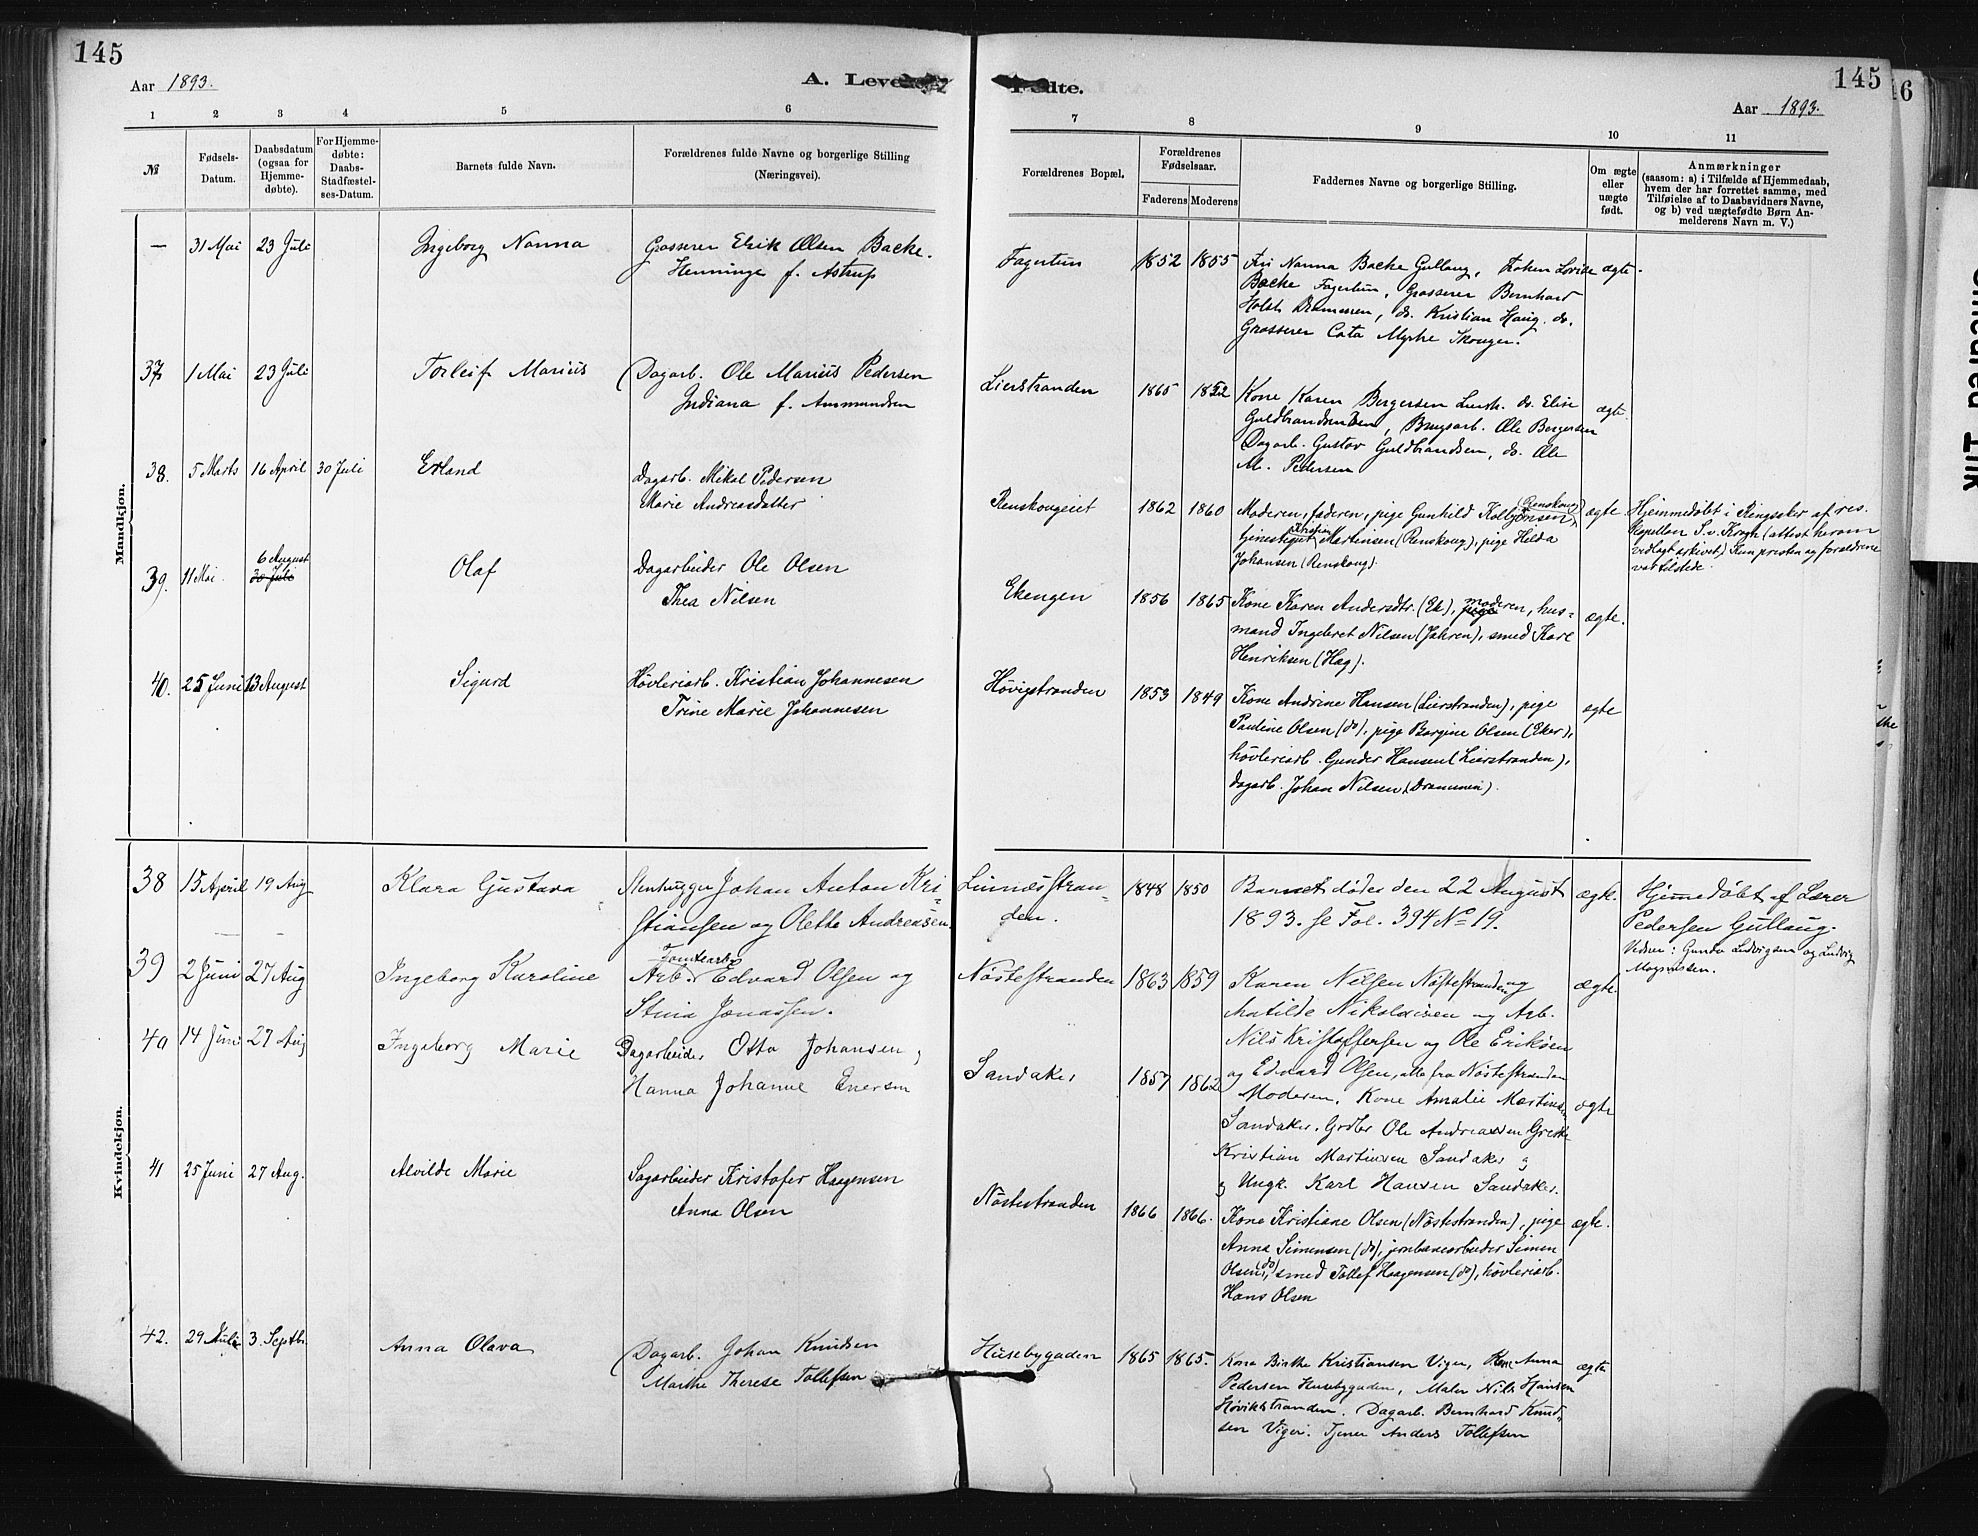 145
Aar 1893.
A. Levende
1 2 3 4 5 6
№
Fødsels-Datum.
Daabsdatum (ogsaa for Hjemme-døbte).
For Hjemme-døbte: Daabs-Stadfæstel-ses-Datum.
Barnets fulde Navn.
Forældrenes fulde Navne og borgerlige Stilling
(Næringsvei).
Mandkjøn.
— 31 Mai 23 Juli Ingeborg Nanna Grosserer Erik Olsen Backe.
Henninge f. Astrup
37 1 Mai 23 Juli Torleif Marius Dagarb. Ole Marius Pedersen
Indiana f. Ammundsen
38. 5 Marts 16 April 30 Juli Erland Dagarb. Mikal Pedersen
Marie Andreasdatter
6 August
39. 11 Mai 30 Juli Olaf Dagarbeider Ole Olsen
Thea Nilsen
40. 25 Juni 13 August Sigurd Høvleriarb. Kristian Johannesen
Trine Marie Johannesen
Kvindekjøn.
38 15 April 19 Aug Klara Gustava Stenhugger Johan Anton Kri-
stiansen og Olette Andreasen
39 2 Juni 27 Aug Ingeborg Karoline Arb. Tomtearb. Edvard Olsen og
Stina Jonassen.
40 14 Juni 27 Aug Ingeborg Marie Dagarbeider Otto Johansen,
Hanna Johanne Enersen
41 25 Juni 27 Aug. Alvilde Marie Sagarbeider Kristofer Haagensen
Anna Olsen
42. 29 Juli 3 Septbr Anna Olava Dagarb. Johan Knudsen
Marthe Therese Tollefsen
Fødte.
145
Aar 1893.
7 8 9 10 11
Forældrenes Bopæl.
Forældrenes Fødselsaar.
Faderens Moderens
Faddernes Navne og borgerlige Stilling.
Om ægte eller uægte født.
Anmærkninger
(saasom: a) i Tilfælde af Hjemmedaab,
hvem der har forrettet samme, med
Tilføielse af to Daabsvidners Navne,
og b) ved uægtefødte Børn An-
melderens Navn m. V.)
Fagertun 1852 1855 Fru Nanna Backe Gullaug, Frøken Lovise ægte.
Backe Fagertun, Grosserer Bernhard
Holst Drammen, do. Kristian Haug. do.
Grosserer Cato Myhre Skouger.
Lierstranden 1865 1852 Kone Karen Bergersen Lierstr. do. Elise ægte.
Guldbrandsen Brugsarb. Ole Bergersen
Dagarb. Gustav Guldbrandsen, do. Ole
M. Pedersen
Renskougeiet 1862 1860 Moderen, faderen, pige Gunhild Kolbjønsen (Renskoug), ægte. Hjemmedøbt i Ringsaker af res.
tjenestegut Kristian Martinsen (Renskoug), pige Hilda Kapellan S. v. Krogh (attest herom
Johansen (Renskoug). vedlagt arkivet) Kun presten og forældrene
var tilstede.
Ekengen 1856 1865 Kone Karen Andersdtr. (Ek), pige moderen, hus- ægte.
mand Ingebret Nilsen (Jahren), smed Karl
Henriksen (Hag).
Høvigstranden 1853 1849 Kone Andrine Hansen (Lierstranden), pige ægte
Pauline Olsen (do), pige Bergine Olsen (Eker),
høvleriarb. Gunder Hansen (Lierstranden),
dagarb. Johan Nilsen (Drammen).
Linnesstran- 1848 1850 Barnet døde den 22 August ægte. Hjemmedøbt af Lærer
den. 1893. se Fol. 394 No 19. Pedersen Gullaug.
Vidner: Gunda Ludvigsen og Ludvig
Magnussen.
Nøstestranden 1863 1859 Karen Nilsen Nøstestranden og ægte.
Matilde Nikolaisen og Arb.
Nils Kristoffersen og Ole Eriksen
og Edvard Olsen, alle fra Nøstestranden
Sandaker 1857 1862 Moderen, Kone Amalie Martinsen ægte
Sandaker, Grdbr Ole Andreassen
Kristian Martinsen Sandaker og
og Ungk. Karl Hansen Sandaker.
Nøstestranden 1866 1866. Kone Kristiane Olsen (Nøstestranden), pige ægte.
Anna Simensen (do), jernbanearbeider Simen
Olsen (do), smed Tollef Haagensen (do), høvleriarb.
Hans Olsen
Husebygaden 1865 1865. Kone Birthe Kristiansen Viger, Kone Anna ægte
Pedersen Husebygaden, Maler Nils Hansen
Høvikstranden. Dagarb. Bernhard Knud-
sen Viger. Tjener Anders Tollefsen